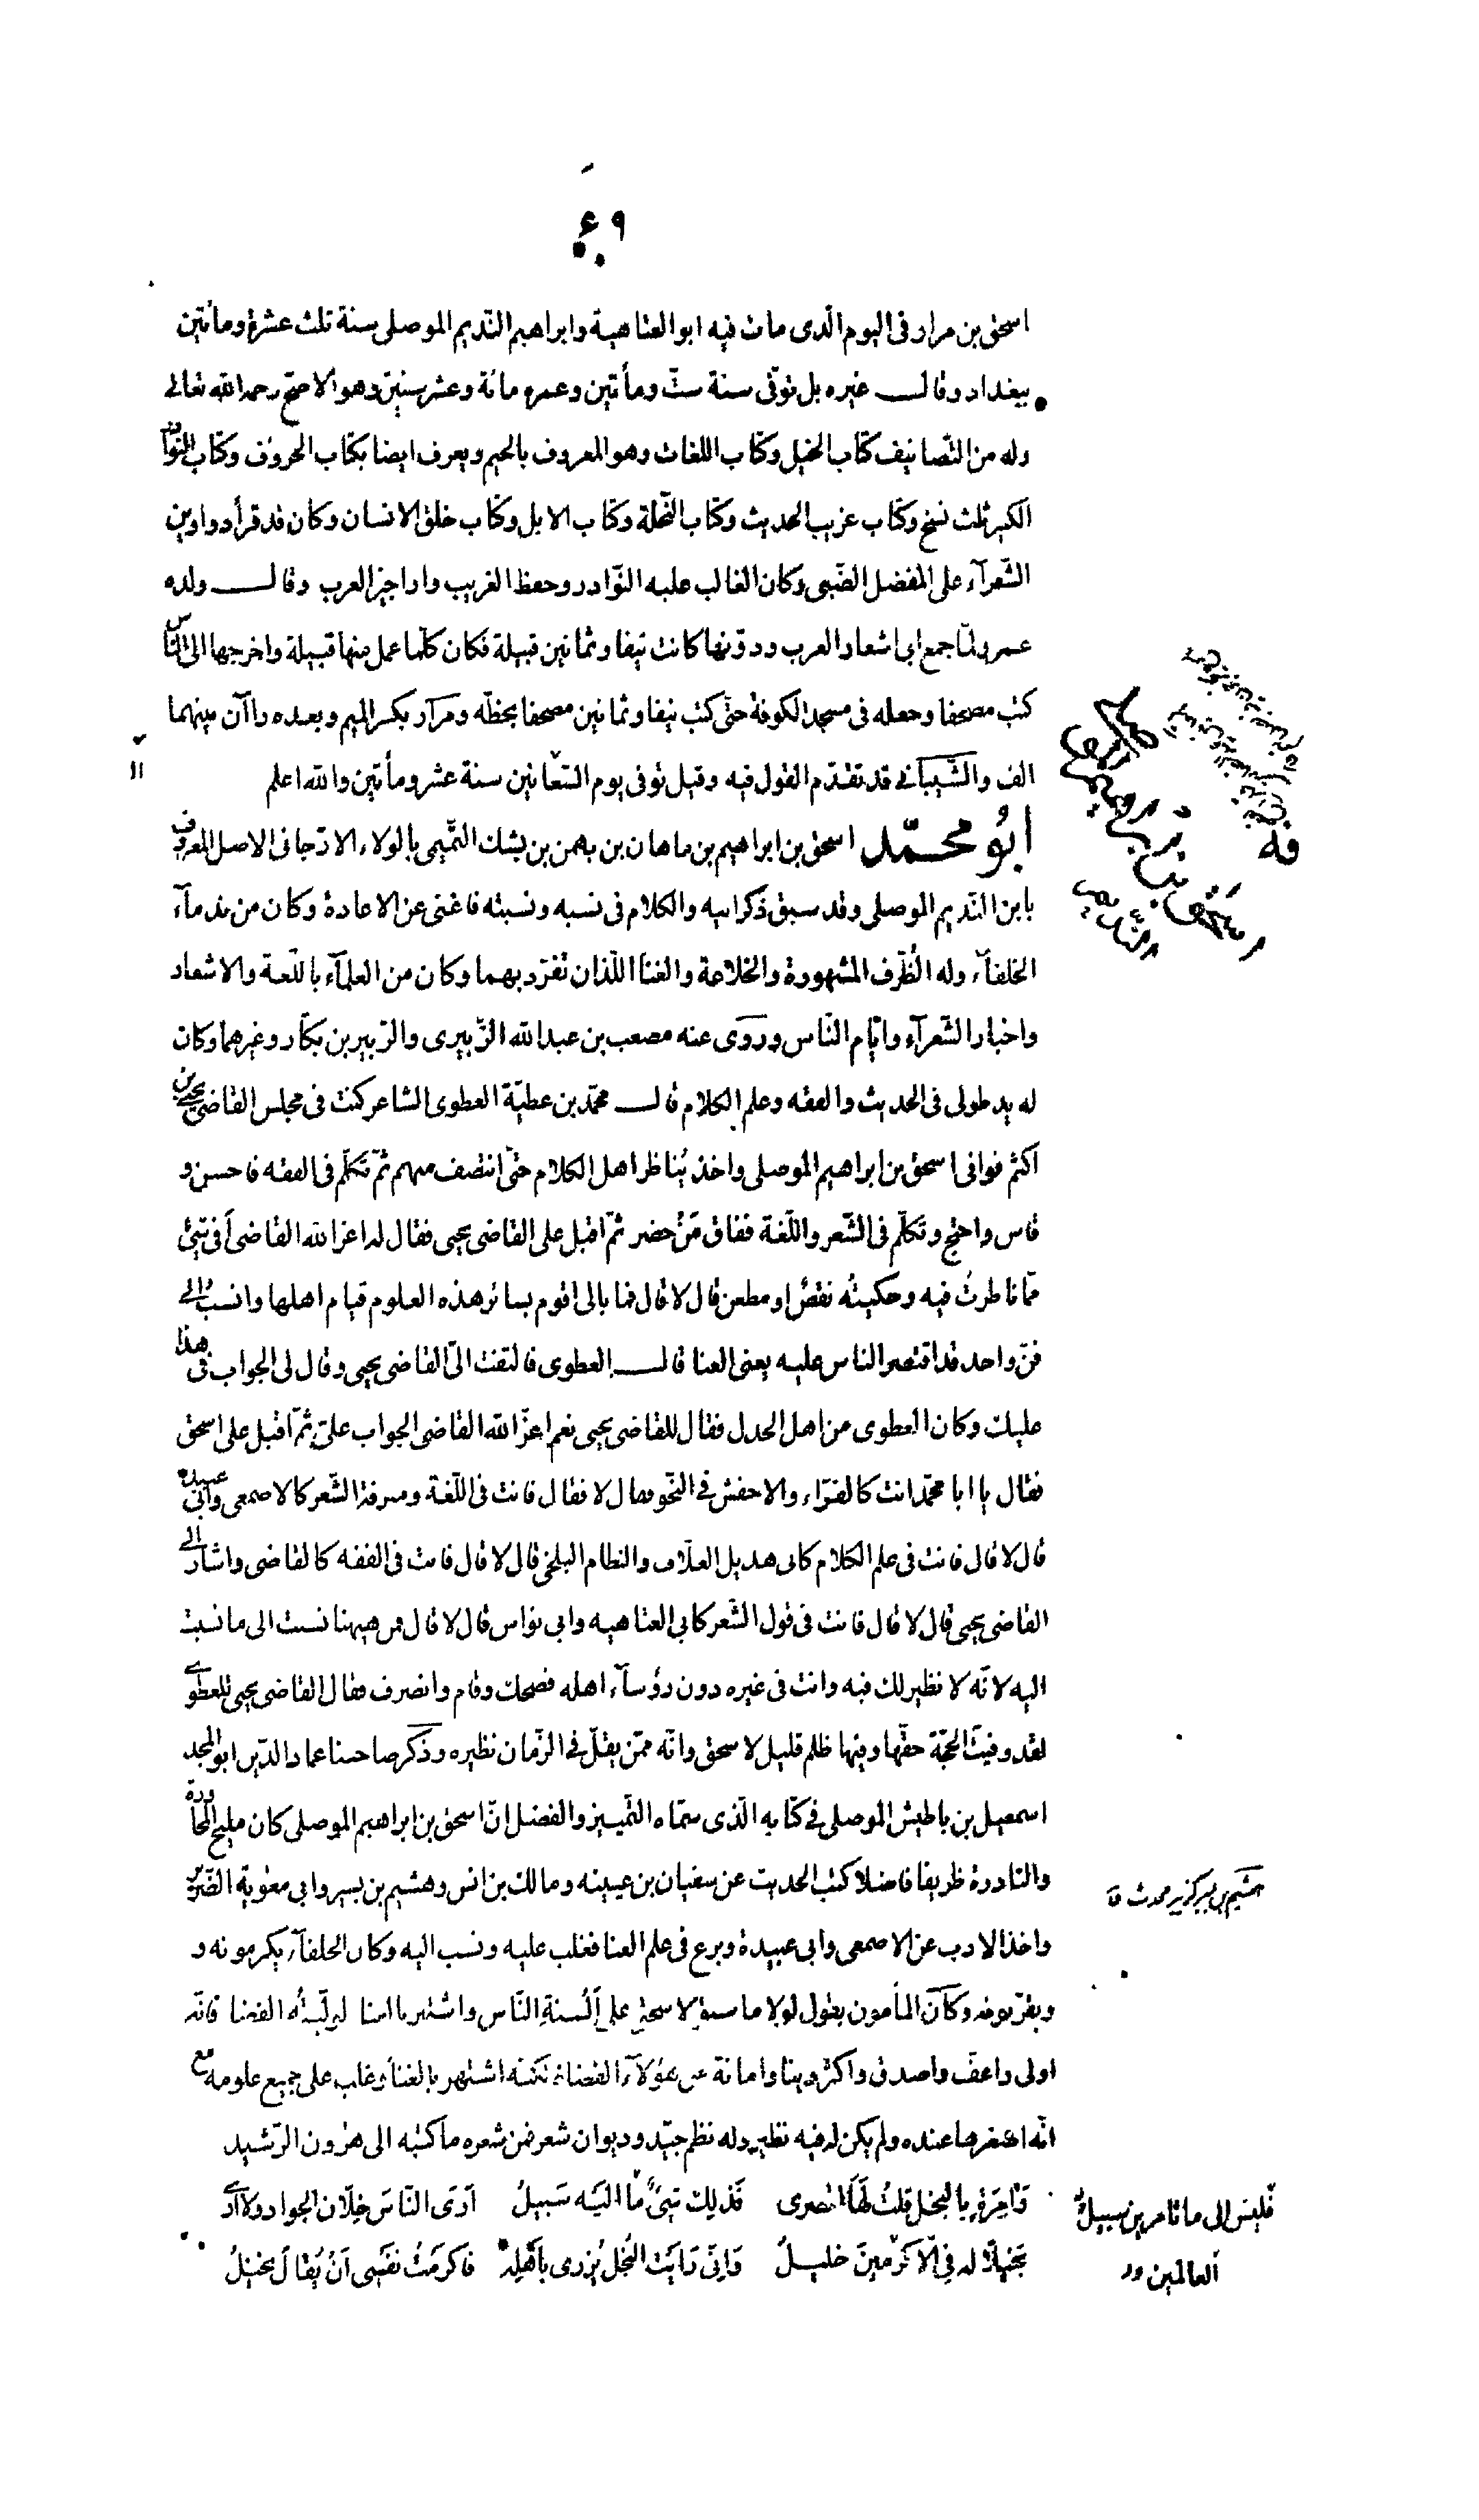 ٤٩
اسحق بن مرار فى اليوم الّذى مات فيه ابو العتاهية وابراهيم النّديم الموصلى سنة ثلث عشرة ومأتين
ببغداد وقال غيره بل توفّى سنة ستّ ومأتين وعمره مائة وعشر سنين وهو الاصحّ رحمه الله تعالى
وله من التّصانيف كتاب الخيل وكتاب اللغات وهو المعروف بالجيم ويعرف ايضا بكتاب الحروف وكتاب النّوادر
الكبير ثلث نسخ وكتاب غريب الحديث وكتاب النّحلة وكتاب الابل وكتاب خلق الانسان وكان قد قرأ دواوين
الشّعرآء على المفضل الضّبى وكان الغالب عليه النّوادر وحفظ الغريب واراجيز العرب وقال ولده
عمرو لمّا جمع ابى اشعار العرب ودوّنها كانت نيفا وثمانين قبيلة فكان كلّما عمل منها قبيلة واخرجها الى النّاس
كتب مصحفا وجعله فى مسجد الكوفة حتّى كتب نيفا وثمانين مصحفا بخطّه ومرار بكسر الميم وبعده راآن بينهما
الف والشّيبانى قد تقدّم القول فيه وقيل توفى يوم السّعانين سنة عشر ومأتين والله اعلم
أبُو محمّد اسحق بن ابراهيم بن ماهان بن بهمن بن بشك التّميمى بالولاء الارّجانى الاصل المعروف
بابن النّديم الموصلى وقد سبق ذكر ابيه والكلام فى نسبه ونسبته فاغنى عن الاعادة وكان من ندمآء
الخلفآء وله الظّرف المشهورة والخلاعة والغنا اللّذان تفرّد بهما وكان من العلمآء باللّغة والاشعار
واخبار الشّعرآء وايّام النّاس وروى عنه مصعب بن عبد الله الزّبيرى والزّبير بن بكّار وغيرهما وكان
له يد طولى فى الحديث والفقه وعلم الكلام قال محمّد بن عطيّة العطوى الشاعر كنت فى مجلس القاضى يحيى بن
اكثم فوافى اسحق بن ابراهيم الموصلى واخذ يُناظر اهل الكلام حتّى انتصف منهم ثمّ تكلّم فى الفقه فاحسن و
قاس واحتج وتكلّم فى الشّعر واللّغة ففاق مَنْ حضر ثمّ اقبل على القاضى يحيى فقال له اعزّ الله القاضى أفى شئ
ممّا ناظرتُ فيه وحكيتُه نقصٌ او مطعن قال لا قال فما بالى اقوم بسائر هذه العلوم قيام اهلها وانسب الى
فنّ واحد قد اقتصر الناس عليه يعنى الغنا قال العطوى فالتفت الىّ القاضى يحيى وقال لى الجواب فى هذا
عليك وكان العطوى من اهل الجدل فقال للقاضى يحيى نعم اعزّ الله القاضى الجواب علىّ ثمّ اقبل على اسحق
فقال يا ابا محمّد انت كالفرّاء والاخفش فى النّحو فقال لا فقال فانت فى اللّغة ومعرفة الشّعر كالاصمعى وأبى عبيدة
قال لا قال فانت فى علم الكلام كابى هذيل العلّاف والنظام البلخى قال لا قال فانت فى الفقه كالقاضى واشار الى
القاضى يحيى قال لا قال فانت فى قول الشّعر كابى العتاهيه وابى نواس قال لا قال فمن ههنا نسبت الى ما نسبت
اليه لانّه لا نظير لك فيه وانت فى غيره دون رؤسآء اهله فضحك وقام وانصرف فقال القاضى يحيى للعطوى
لقد وفيت الحجّة حقّها وفيها ظلم قليل لاسحق وانّه ممّن يقلّ فى الزّمان نظيره وذكر صاحبنا عماد الدّين ابو المجد
اسمعيل بن باطيش الموصلى فى كتابه الّذى سمّاه التّمييز والفصل انّ اسحق بن ابراهيم الموصلى كان مليح المحاورة
والنادرة ظريفا فاضلا كتب الحديث عن سفيان بن عيينه ومالك بن انس وهشيم بن بسير وابى معوية الضّرير
واخذ الادب عن الاصمعى وابى عبيدة وبرع فى علم الغنا فغلب عليه ونسب اليه وكان الخلفآء يكرمونه و
ويقرّبونه وكان المأمون يقول لولا ما سبق لاسحق على ألسنة النّاس واشتهر بالغنا لولّيته القضا فانّه
اولى واعفّ واصدق واكثر دينا وامانة من هؤلآء القضاة لكنّه اشتهر بالغنا وغلب على جميع علومه مع
انّه اصغرها عنده ولم يكن له فيه نظير وله نظم جيّد وديوان شعر فمن شعره ما كتبه الى هٰرون الرّشيد
وَآمِرَةٍ بِالبُخل قلتُ لَهَا اقصرى فَذٰلِك شَئٌ مّا اليَه سَبيلُ ارَى النّاسَ خِلّان الجواد ولا أرى
بَخيلًا له فى الاكرَمينَ خليلُ وَانّى رَايَت البُخل يُزرى باَهلِه فَاكرمَتُ نفسِى اَنْ يُقالَ بخيلُ
اسحق بن ابراهيم الموصلى
هشيم بن بسير كزبير محدث ق
فليس الى ما تامرين سبيلُ
العالمين